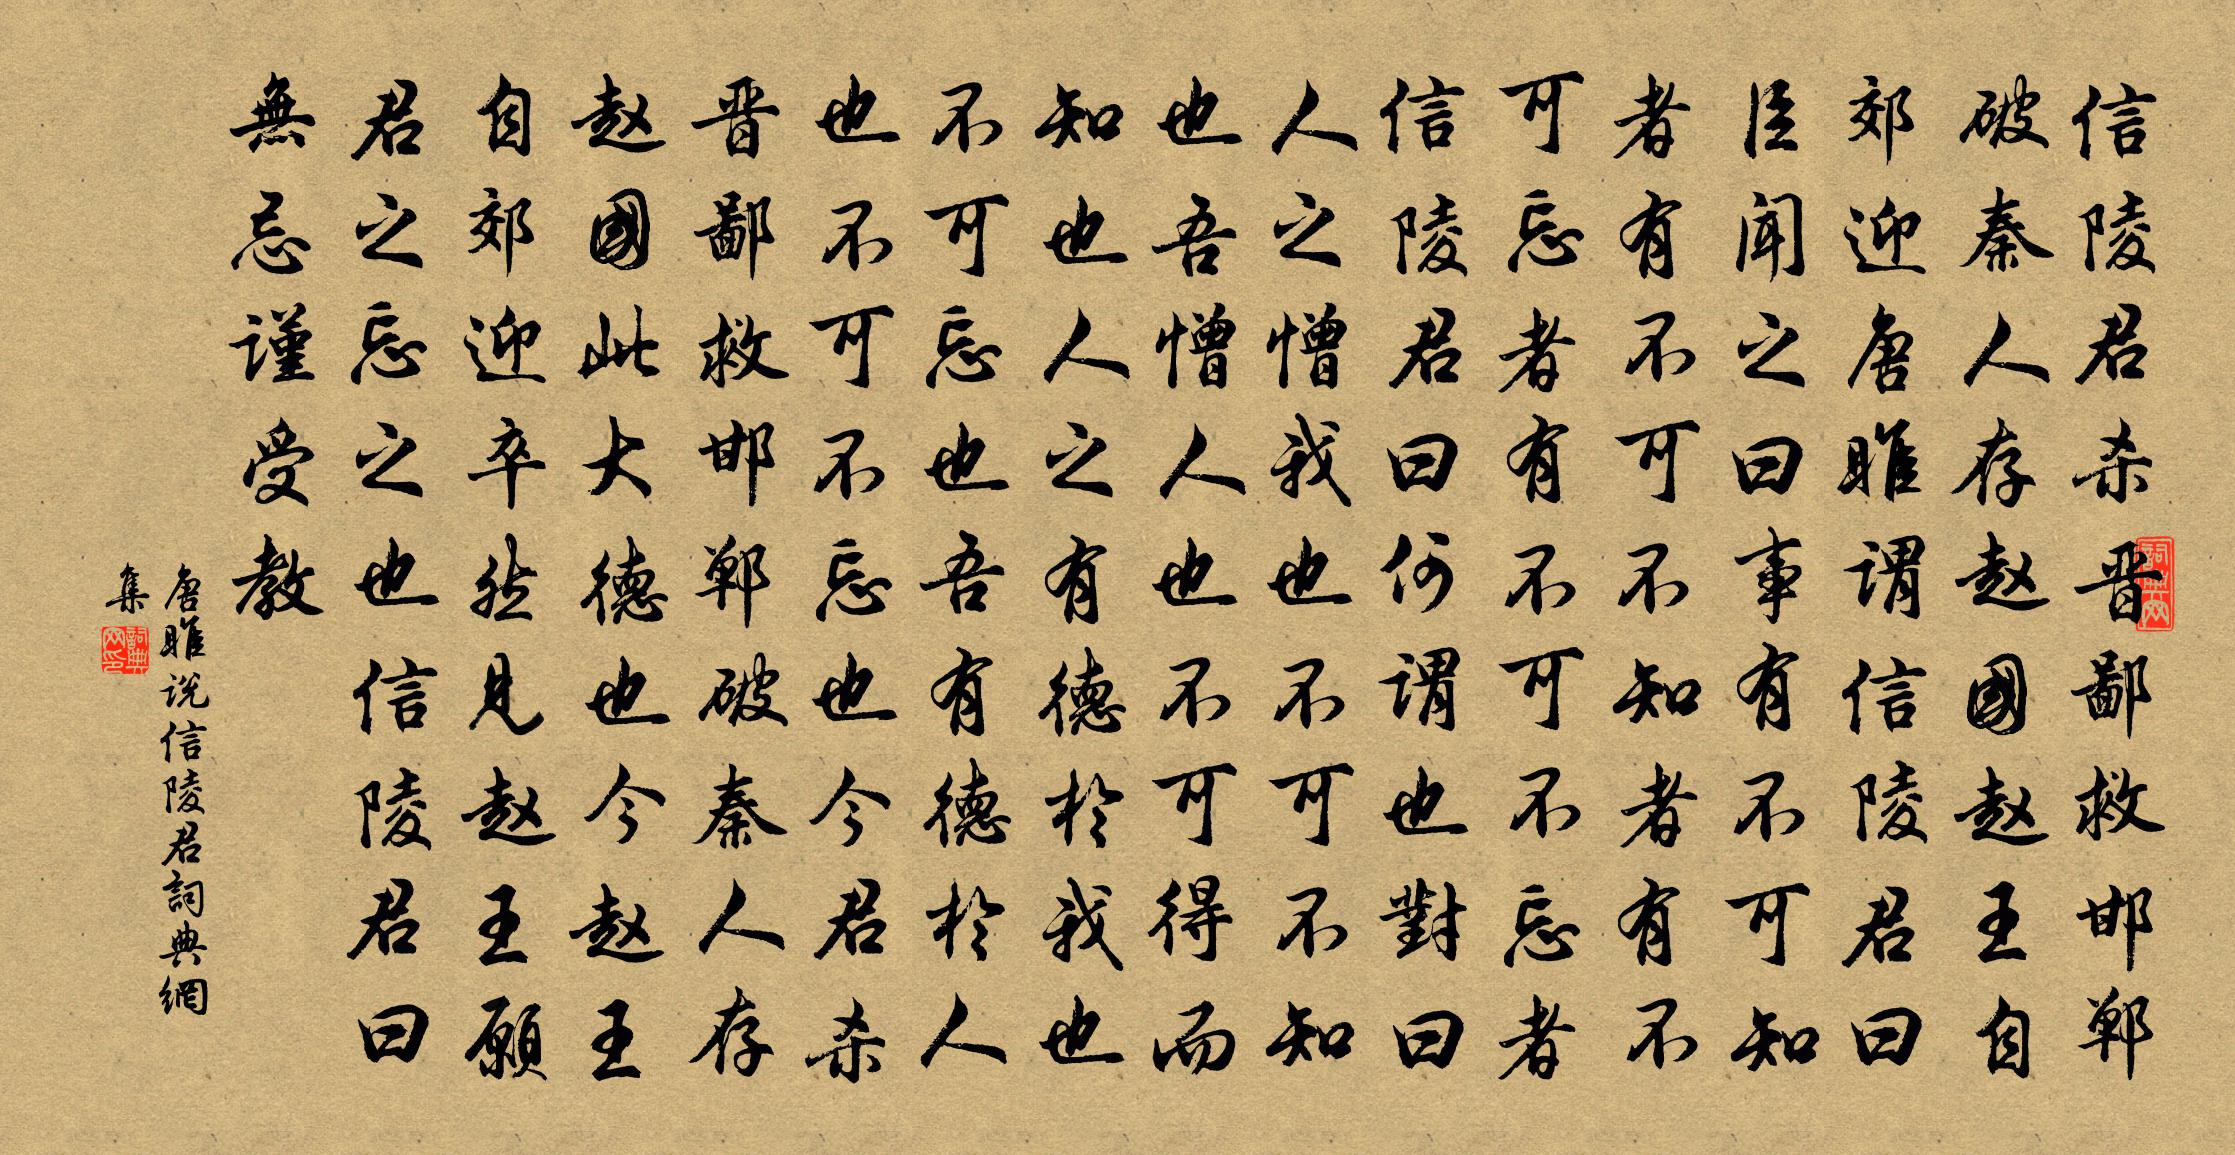 信陵君杀晋鄙救邯郸
破秦人存赵國赵王自
郊迎唐睢谓信陵君曰
臣闻之曰事有不可知
者有不可不知者有不
可忘者有不可不忘者
信陵君曰何谓也對曰
人之憎我也不可不知
也吾憎人也不可得而
知也人之有德於我也
不可忘也吾有德於人
也不可不忘也今君杀
晋鄙救邯郸破秦人存
赵國此大德也今赵王
自郊迎卒然見赵王願
君之忘之也信陵君曰
無忌谨受教
唐睢说信陵君詞典網
集
詞典网
詞典网印